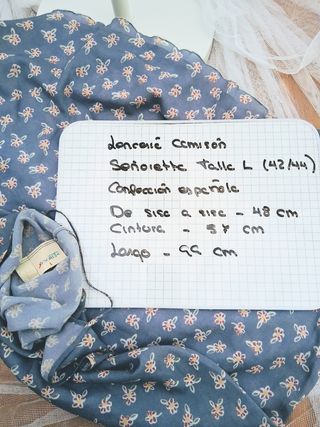 Lencerié Camisón
Señoretta Talla L (42/44)
Confección española
De sisa a sisa - 48 cm
Cintura - 57 cm
Largo - 99 cm